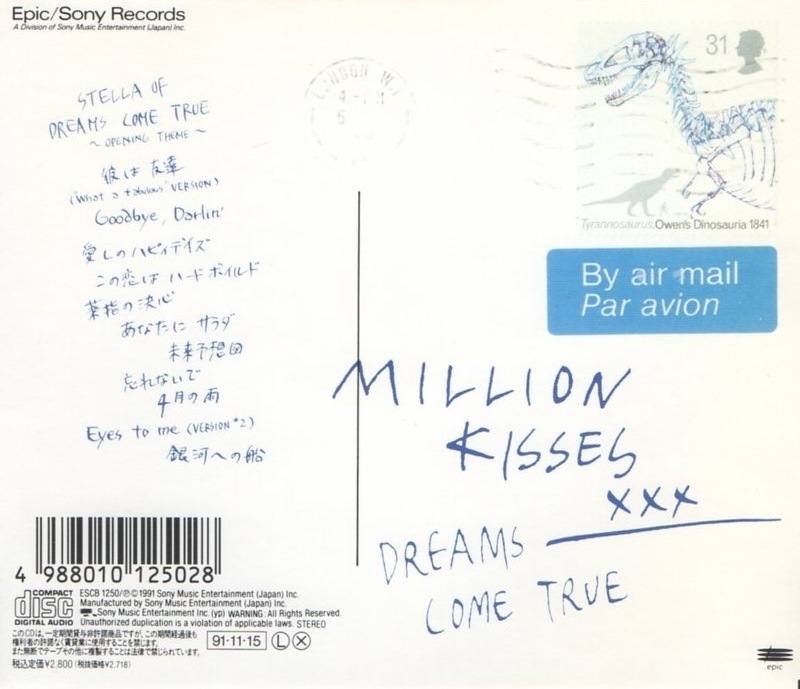 Epic/Sony Records
A Division of Sony Music Entertainment (Japan) Inc.
STELLA OF
DREAMS COME TRUE
~ OPENING THEME ~
彼は友達
("What a fabulous" VERSION)
Goodbye, Darlin'
愛しのハピィデイズ
この恋はハードボイルド
薬指の決心
あなたにサラダ
未来予想図
忘れないで
4月の雨
Eyes to me (VERSION #2)
銀河への船
LONDON W1
31
Tyrannosaurus, Owen's Dinosauria 1841
By air mail
Par avion
MILLION
KISSES
XXX
DREAMS
COME TRUE
4 988010 125028
COMPACT
disc
DIGITAL AUDIO
ESCB 1250/Ⓟ©1991 Sony Music Entertainment (Japan) Inc.
Manufactured by Sony Music Entertainment (Japan) Inc.
Sony Music Entertainment Inc. (yp) WARNING: All Rights Reserved.
Unauthorized duplication is a violation of applicable laws. STEREO
このCDは、一定期間貸与非許諾商品ですが、この期間経過後も
権利者の許諾なく賃貸業に使用することを禁じます。
また無断でテープその他に複製することは法律で禁じられています。
税込定価¥2.800 (税抜価格¥2.718)
91·11·15 Ⓛ Ⓧ
epic